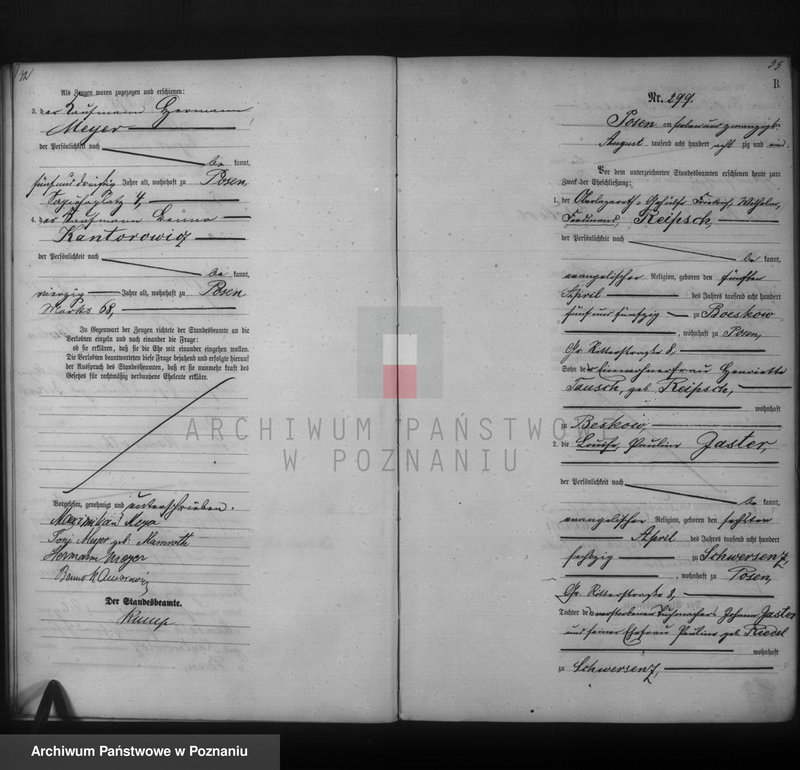 Als Zeugen waren zugezogen und erschienen:
3. der Kaufmann Hermann
Meyer
der Persönlichkeit nach
be kannt,
fünf und dreißig Jahre alt, wohnhaft zu Posen,
Sapiehaplatz 4,
4. der Kaufmann Benno
Kantorowicz
der Persönlichkeit nach
be kannt,
vierzig Jahre alt, wohnhaft zu Posen
Markt 68,
In Gegenwart der Zeugen richtete der Standesbeamte an die
Verlobten einzeln und nach einander die Frage:
ob sie erklären, daß sie die Ehe mit einander eingehen wollen.
Die Verlobten beantworteten diese Frage bejahend und erfolgte hierauf
der Ausspruch des Standesbeamten, daß er sie nunmehr kraft des
Gesetzes für rechtmäßig verbundene Eheleute erkläre.
Vorgelesen, genehmigt und unterschrieben.
Maximilian Meyer
Meyer geb. Mamroth
Hermann Meyer
Benno Kantorowicz
Der Standesbeamte.
B
Nr. 299.
Posen am sieben und zwanzigsten
August tausend acht hundert acht zig und
Vor dem unterzeichneten Standesbeamten erschienen heute zum
Zweck der Eheschließung:
1. der Oberlazareth-Gehülfe Friedrich, Wilhelm,
Ferdinand, Reipsch,
der Persönlichkeit nach
be kannt,
evangelischer Religion, geboren den fünften
April des Jahres tausend acht hundert
fünf und fünfzig zu Beeskow
, wohnhaft zu Posen,
Gr. Ritterstraße 8,
Sohn der Einwohnerfrau Henriette
Tausch, geb. Reipsch,
wohnhaft
zu Beskow
2. die Louise, Pauline Zaster,
der Persönlichkeit nach
be kannt,
evangelischer Religion, geboren den sechsten
April des Jahres tausend acht hundert
sechszig zu Schwersenz,
, wohnhaft zu Posen,
Gr. Ritterstraße 8,
Tochter des verstorbenen Tuchmachers Johann Zaster
und seiner Ehefrau Pauline geb. Riedel
wohnhaft
zu Schwersenz,
ARCHIWUM PAŃSTWOWE
W POZNANIU
Archiwum Państwowe w Poznaniu